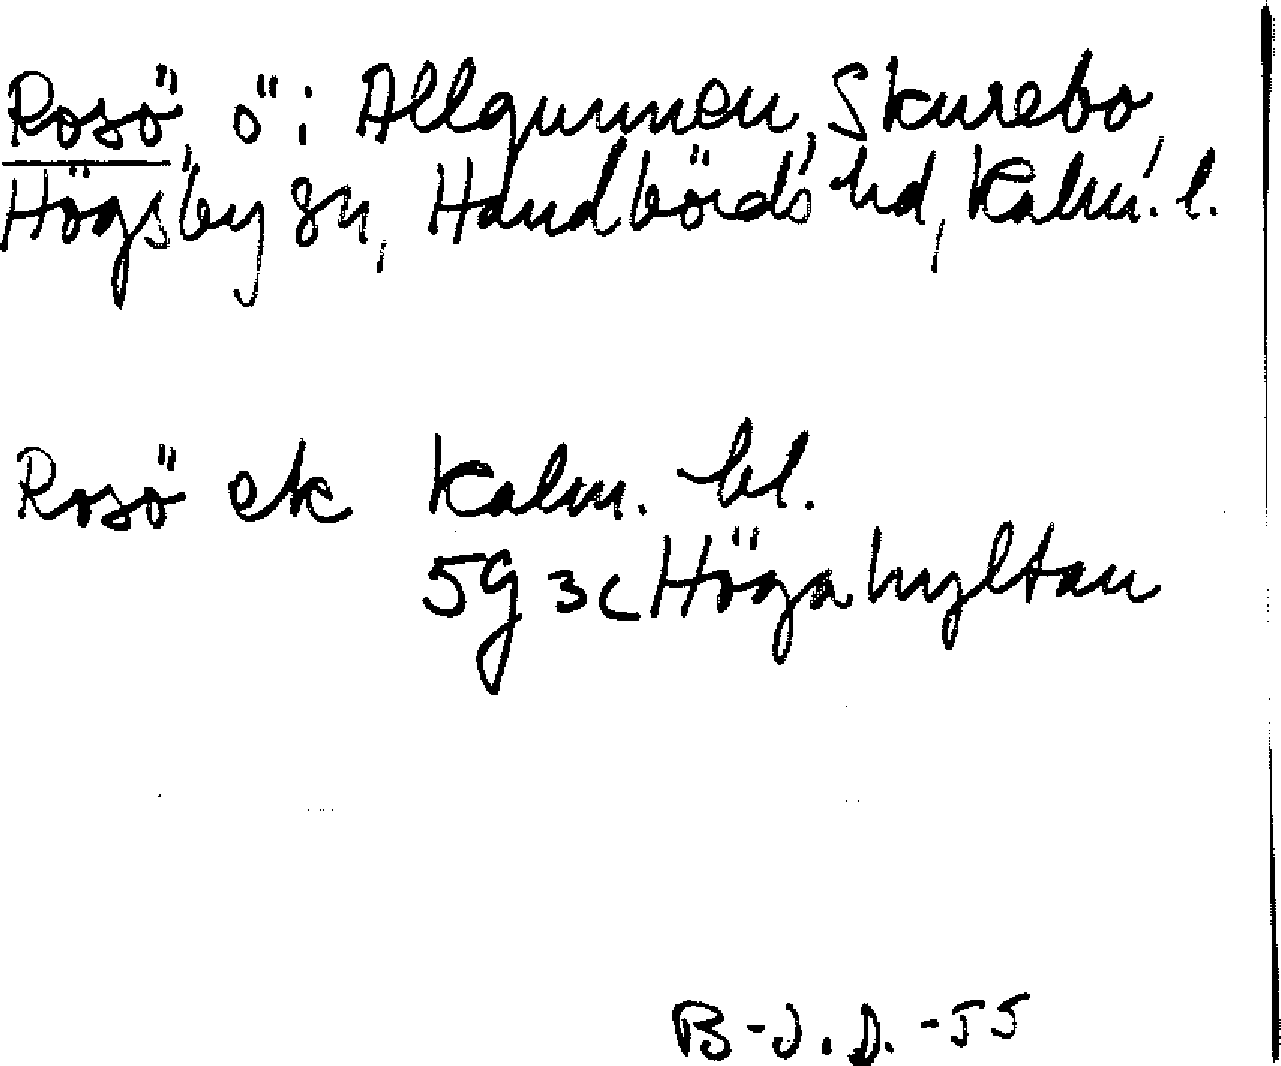 Rosö, ö i Allgunnen, Skurebo,
Högsby sn, Handbörds hd, Kalm. l.
Rosö ek Kalm. bl.
5g 3c Högahyltan
B-J.D. -55